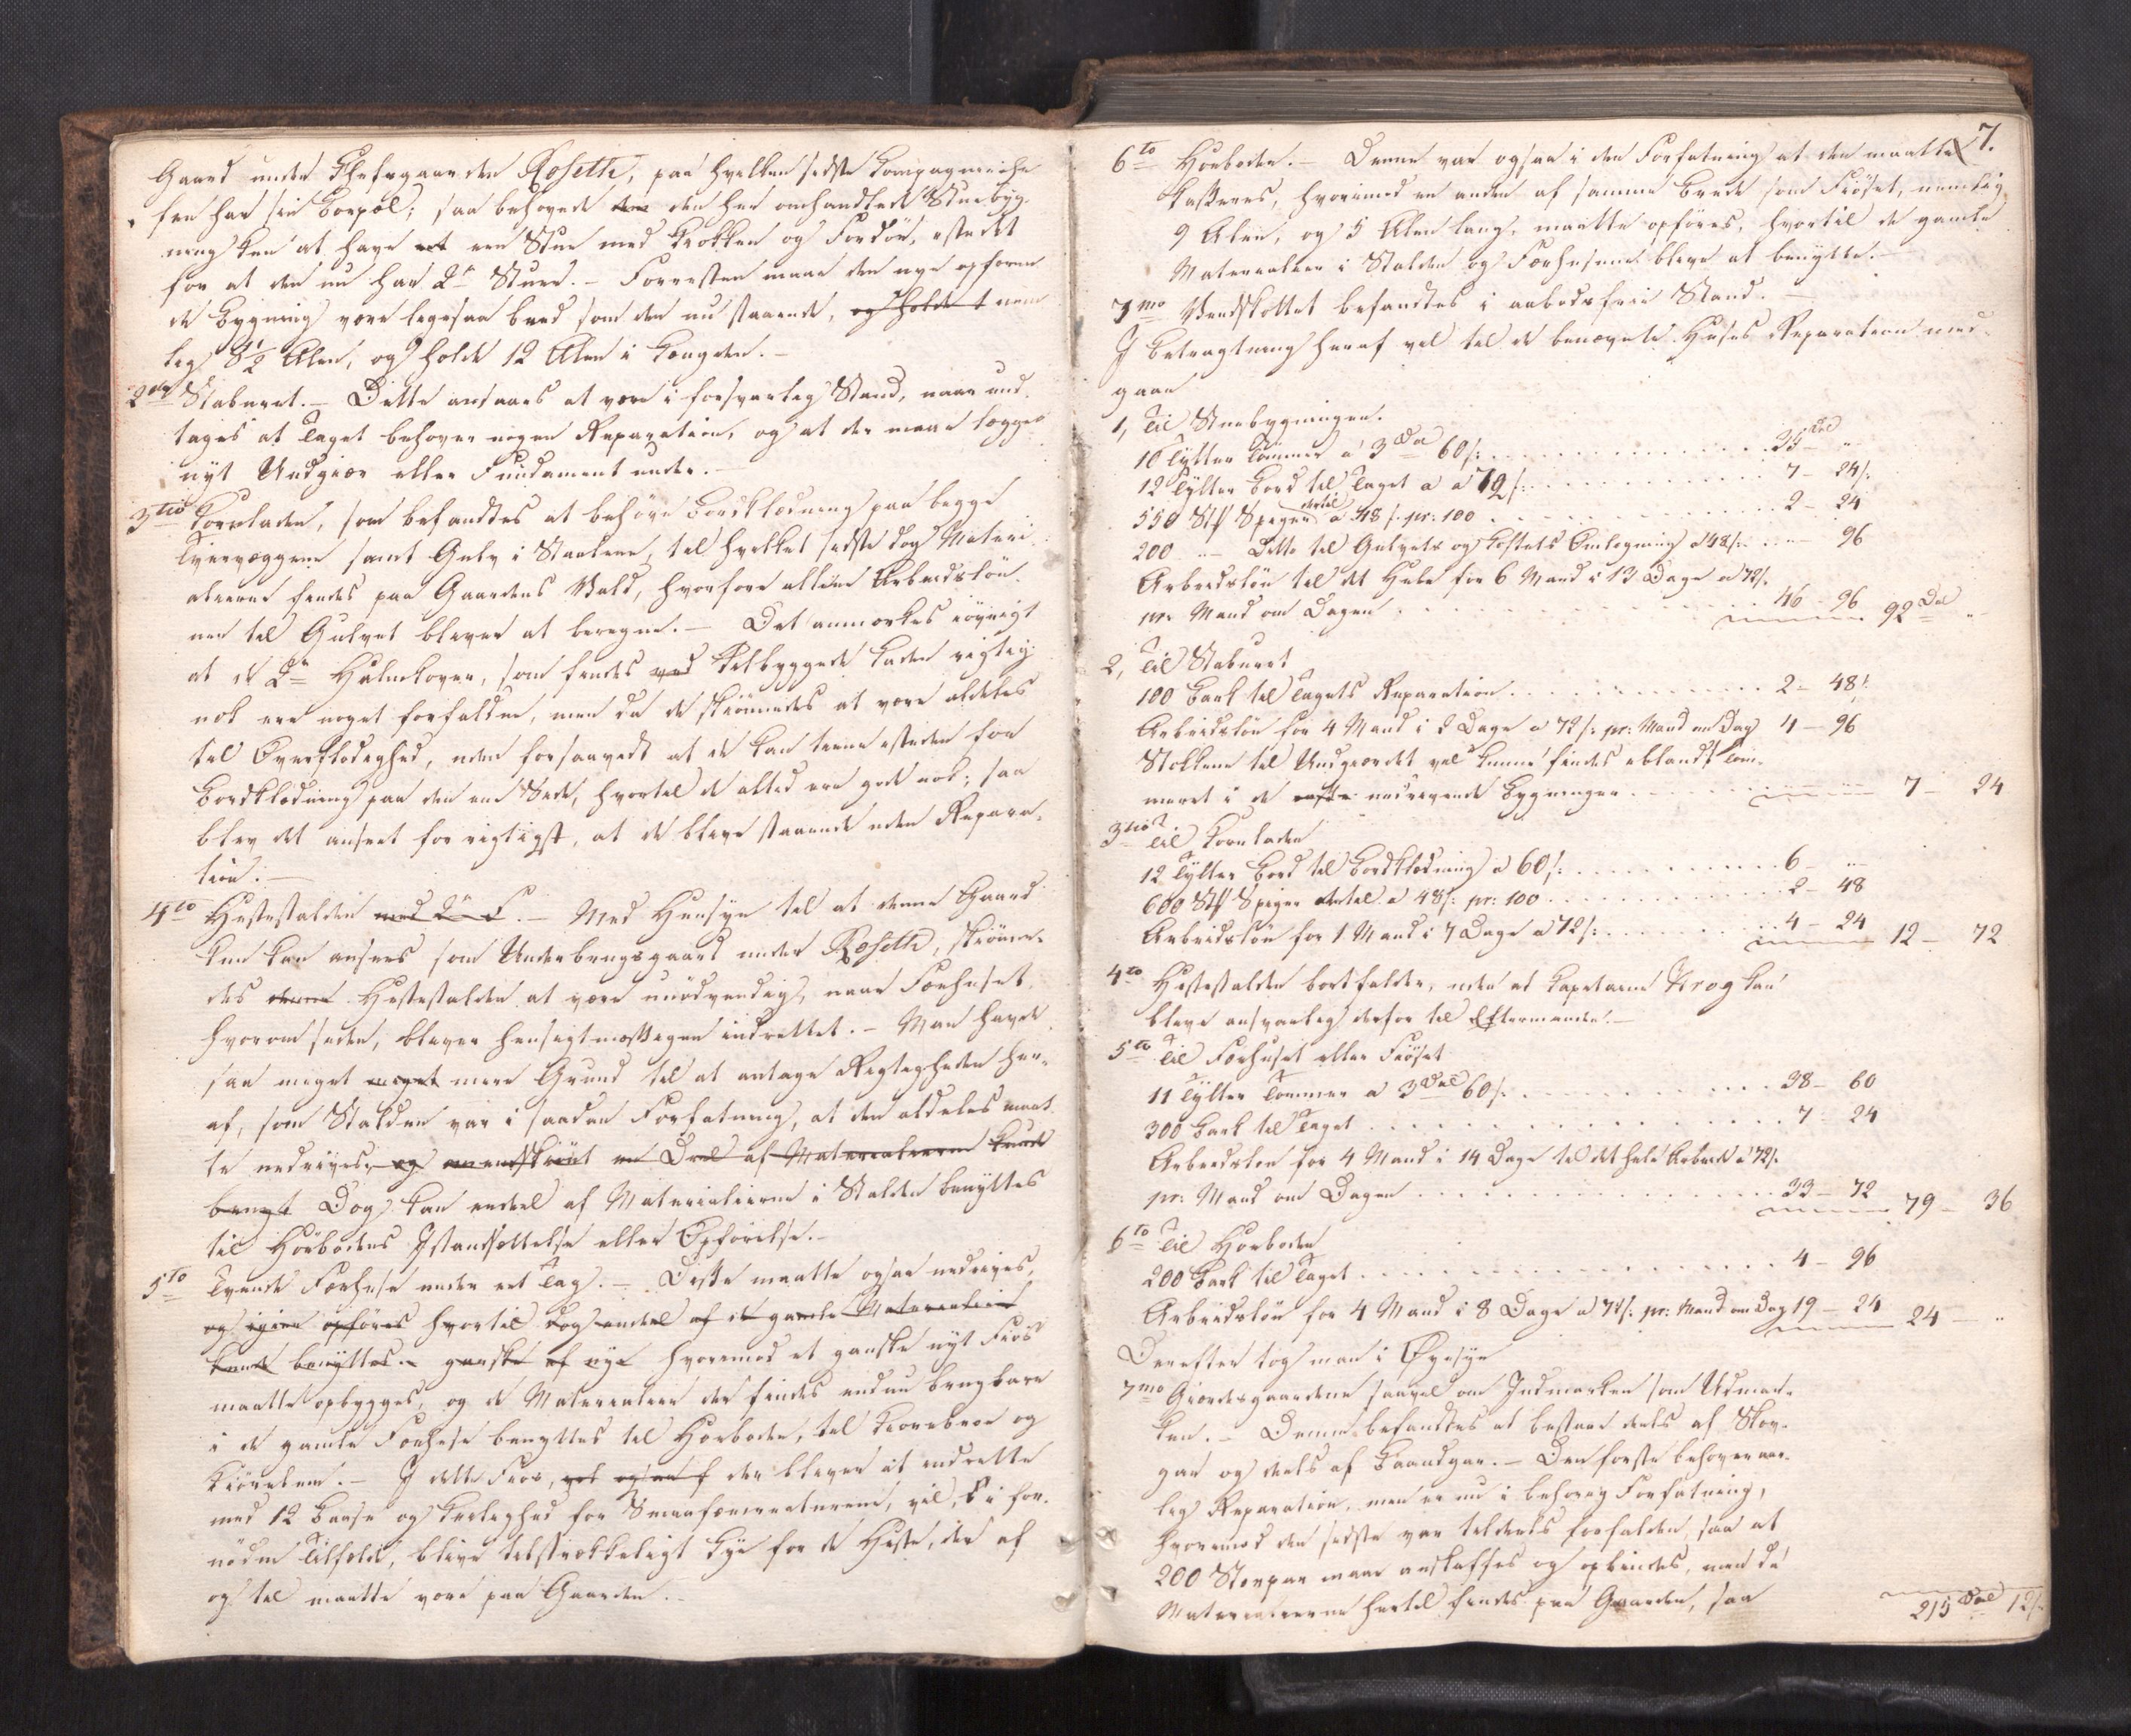 Gaard under Chefsgaarden Roseth, paa hvilken sidste Compagnieche
fen har sin Boepæl; saa behøvede den den her omhandlede Stuebyg-
ning kun at have een Stue med Kjøkken og Fordør, istedet
for at den nu har 2de Stuer. – Forresten maae den nye opføren
de Bygning være ligesaa bred som den nu staaende, og holde nem
lig 8½ Alen, og holde 12 Alen i Længden. –
2do Staburet. – Dette ansaaes at være i forsvarlig Stand, naar und-
tages at Taget behøver nogen Reparation, og at der maae lægges
nyt Undgier eller Fundament under. –
3tio Kornladen, som befandtes at behøve Bordklædning paa begge
Tvervæggene samt Gulv i Staalene, til hvilket sidste dog Materi
alierne findes paa Gaardens Vald, hvorfore allene Arbeidsløn-
nen til Gulvet bliver at beregne. – Det anmærkes iøvrigt
at de 2de Halmelover, som findes ved tilbyggede Laden rigtig
nok ere noget forfaldne, men da de skiønnedes at være aldeles
til Overflødighed, uden forsaavidt at de kan tiene istedenfor
Bordklædning paa den ene Side, hvortil de altid ere gode nok; saa
blev det anseet for rigtigst, at de bleve staaende uden Repara-
tion. –
4to Hestestalden med 2de – Med Hensyn til at denne Gaard
kun kan ansees som Underbrugsgaard under Roseth, skiønne-
des denne Hestestalden at være unødvendig, naar Foehuset,
hvorom siden, bliver hensigtmæssigen indrettet. – Man havde
saa meget meget mere Grund til at antage Rigtigheden her-
af, som Stalden var i saadan Forfatning, at den aldeles maat-
te nedrives, og en Deel af Materialierne kunde
benyt Dog kan endeel af Materialierne i Stalden benyttes
til Høebodens Istandsættelse eller Opførelse. –
5to Tvende Foehuse under eet Tag. – Disse maatte ogsaa nedrives,
og igien opføres hvortil dog endeel af de gamle Materialier
kunde benyttes. – ganske af nye hvorimod et ganske nyt Fiøs
maatte opbygges, og de Materialier der findes endnu brugbare
i de gamle Foehuse benyttes til Høeboden, til Kiørebroe og
Kiørelem. – I dette Fiøs, der bliver at indrette
med 12 Baase og Leilighed for Smaafæecreaturene, vil, i for-
nøden Tilfælde, blive tilstrækkeligt Rye for de Heste, der af
og til maatte være paa Gaarden. –
7.
6to Høeboden. – Denne var ogsaa i den Forfatning at den maatte
kasseres, hvorimod en anden af samme Brede som Fiøset, nemlig
9 Alen, og 5 Alen lang, maatte opføres, hvortil de gamle
Materialier i Stalden og Foehusene bleve at benytte. –
7mo Vendskottet befandtes i aabodsfrie Stand. –
I Betragtning heraf vil til de benævnte Huses Reparation med-
gaae
1, Til Stuebygningen.
10 Tylter Tømmer a 3 Dal 60 s: 35 Dal "
12 Tylter Bord til Taget a a 72 s: 7 – 24 s:
550 Stk Spiger dertil a 48 s. pr: 100 2 – 24
200 " – Ditto til Gulvets og Loftets Omlegning a 48 s: " – 96
Arbeidsløn til det Hele for 6 Mand i 13 Dage a 72 s.
pr: Mand om Dagen 46 – 96 92 Dal "
2, Til Staburet
100 Bark til Tagets Reparation 2 – 48 s:
Arbeidsløn for 4 Mand i 2 Dage a 72 s: pr: Mand om Dag 4 – 96
Stokkene til Undgierdet vel kunne findes iblandt Tøm-
meret i de nedrivende Bygninger 7 – 24
3tio Til Kornladen
12 Tylter Bord til Bordklædning a 60 s: 6 – "
600 Stk Spiger dertil a 48 s: pr: 100 2 – 48
Arbeidsløn for 1 Mand i 7 Dage a 72 s: 4 – 24 12 – 72
4to Hestestalden bortfalder, uden at Capitaine Krog kan
blive ansvarlig derfor til Eftermanden. –
5to Til Foehuset eller Fiøset
11 Tylter Tømmer a 3 Dal 60 s: 38 – 60
300 Bark til Taget 7 – 24
Arbeidsløn for 4 Mand i 14 Dage til det hele Arbeide a 72 s.
pr: Mand om Dagen 33 – 72 79 – 36
6to Til Høeboden
200 Bark til Taget 4 – 96
Arbeidsløn for 4 Mand i 8 Dage a 72 s: pr: Mand om Dag 19 – 24 24 – "
Derefter tog man i Øyesyn
7mo Gierdesgaardene saavel om Indmarken som Udmar-
ken. – Denne befandtes at bestaae deels af Skov-
gar og deels af Baandgar. – Den første behøver aar-
lig Reparation, men er nu i behørig Forfatning,
hvorimod den sidste var tildeels forfalden, saa at
200 Størpar maae anskaffes og opbindes, men da
Materialierne hertil findes paa Gaarden, saa
215 Dal 12 s.